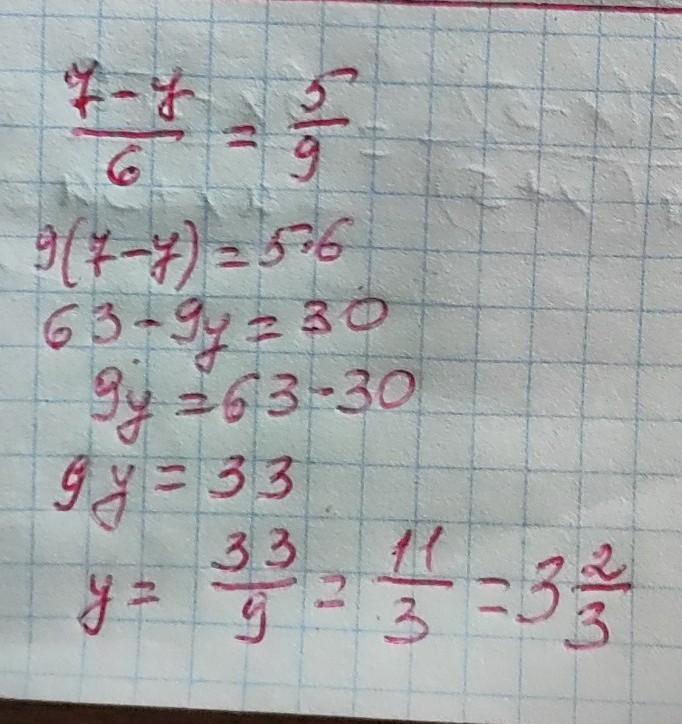 7-y/6 = 5/9
9(7-y)=5·6
63-9y=30
9y=63-30
9y=33
y= 33/9 = 11/3 =3 2/3